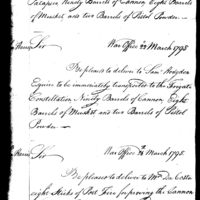 Barrels of Cannon Eight Barrels
of Musket, and two Barrels of Pistol
Powder.
Sir War Office 22 March 1798
Be pleased to deliver to Sam. Hodgdon
Esquire to be immediately transported to the Frigate
Constellation Ninety Barrels of Cannon, Eight
Barrels of Musket and two Barrels of Pistol
Powder
Sir War Office March 1798
Be pleased to deliver to Mr. Da Costa
eight Sticks of Port Fire for proving the Cannon